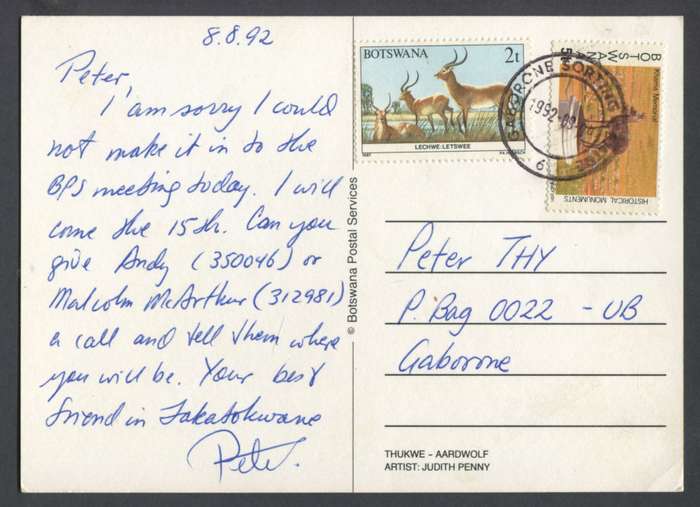 8.8.92
Peter,
I am sorry I could
not make it in to the
BPS meeting today. I will
come the 15th. Can you
give Andy (350046) or
Malcolm McArthur (312981)
a call and tell them where
you will be. Your best
friend in Takatokwane
Peter.
© Botswana Postal Services
BOTSWANA
2t
LECHWE: LETSWEE
1987
GABORONE SORTING
1992-08
6
BOTSWANA
HISTORICAL MONUMENTS
Peter THY
P. Bag 0022 - UB
Gaborone
THUKWE - AARDWOLF
ARTIST: JUDITH PENNY